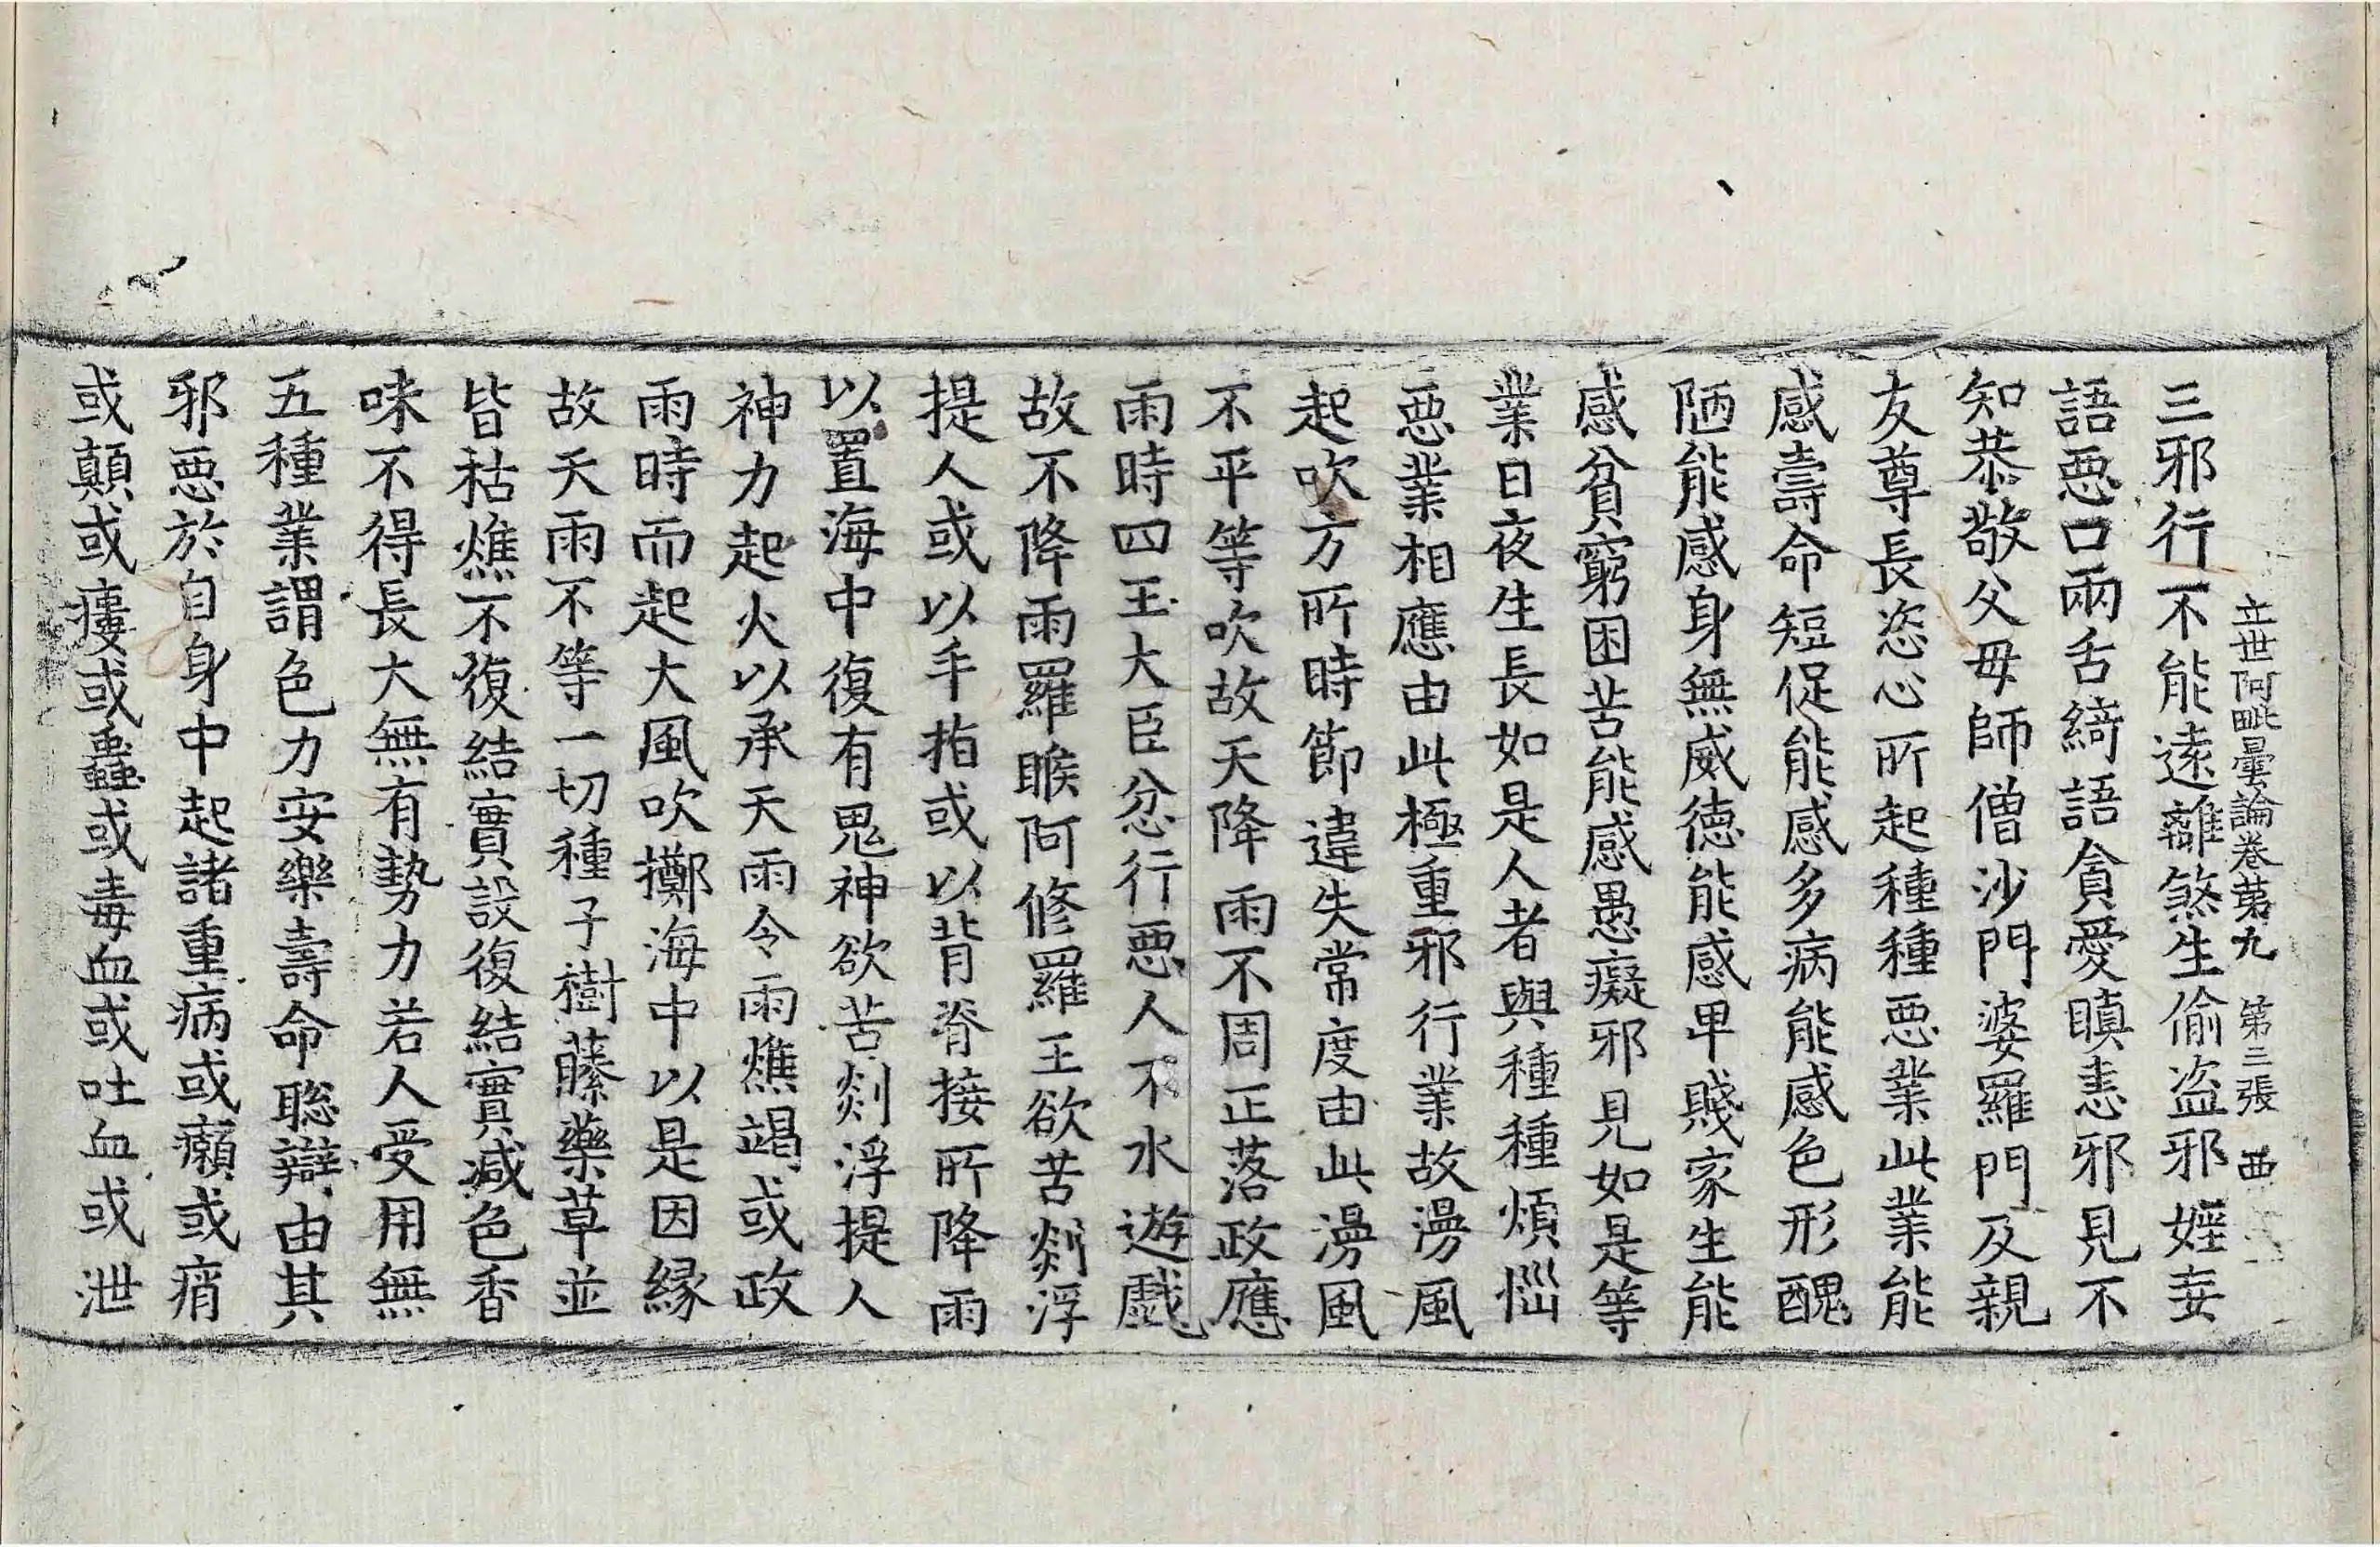 立世阿毗曇論卷第九 第三張 西
三邪行不能遠離煞生偷盗邪婬妄
語惡口兩舌綺語貪愛瞋恚邪見不
知恭敬父母師僧沙門婆羅門及親
友尊長恣心所起種種惡業此業能
感壽命短促能感多病能感色形醜
陋能感身無威德能感卑賤家生能
感貧窮困苦能感愚癡邪見如是等
業日夜生長如是人者與種種煩惱
惡業相應由此極重邪行業故澇風
起吹方所時節違失常度由此澇風
不平等吹故天降雨不周正落政應
雨時四王大臣忿行惡人不水遊戲
故不降雨羅睺阿修羅王欲苦剡浮
提人或以手指或以背脊接所降雨
以置海中復有鬼神欲苦剡浮提人
神力起火以承天雨令雨燋竭或政
雨時而起大風吹擲海中以是因緣
故天雨不等一切種子樹藤藥草並
皆枯燋不復結實設復結實减色香
味不得長大無有勢力若人受用無
五種業謂色力安樂壽命聡辯由其
邪惡於自身中起諸重病或癩或痟
或顛或瘻或蠱或毒血或吐血或泄